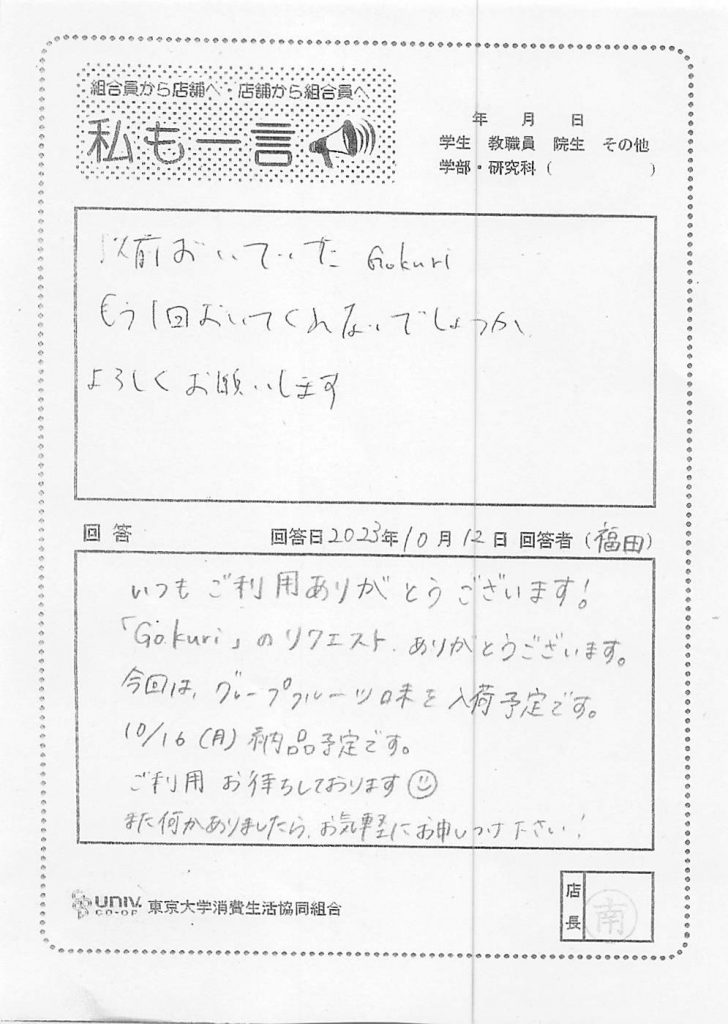 組合員から店舗へ・店舗から組合員へ
私も一言
年 月 日
学生 教職員 院生 その他
学部・研究科( )
以前おいていた Gokuri
もう1回おいてくれないでしょうか
よろしくお願いします
回答 回答日2023年10月12日 回答者(福田)
いつもご利用ありがとうございます!
「Gokuri」のリクエスト、ありがとうございます。
今回は、グレープフルーツ味を入荷予定です。
10/16(月)納品予定です。
ご利用お待ちしております☺
また何かありましたら、お気軽にお申しつけ下さい!
UNIV. CO-OP 東京大学消費生活協同組合
店長 南